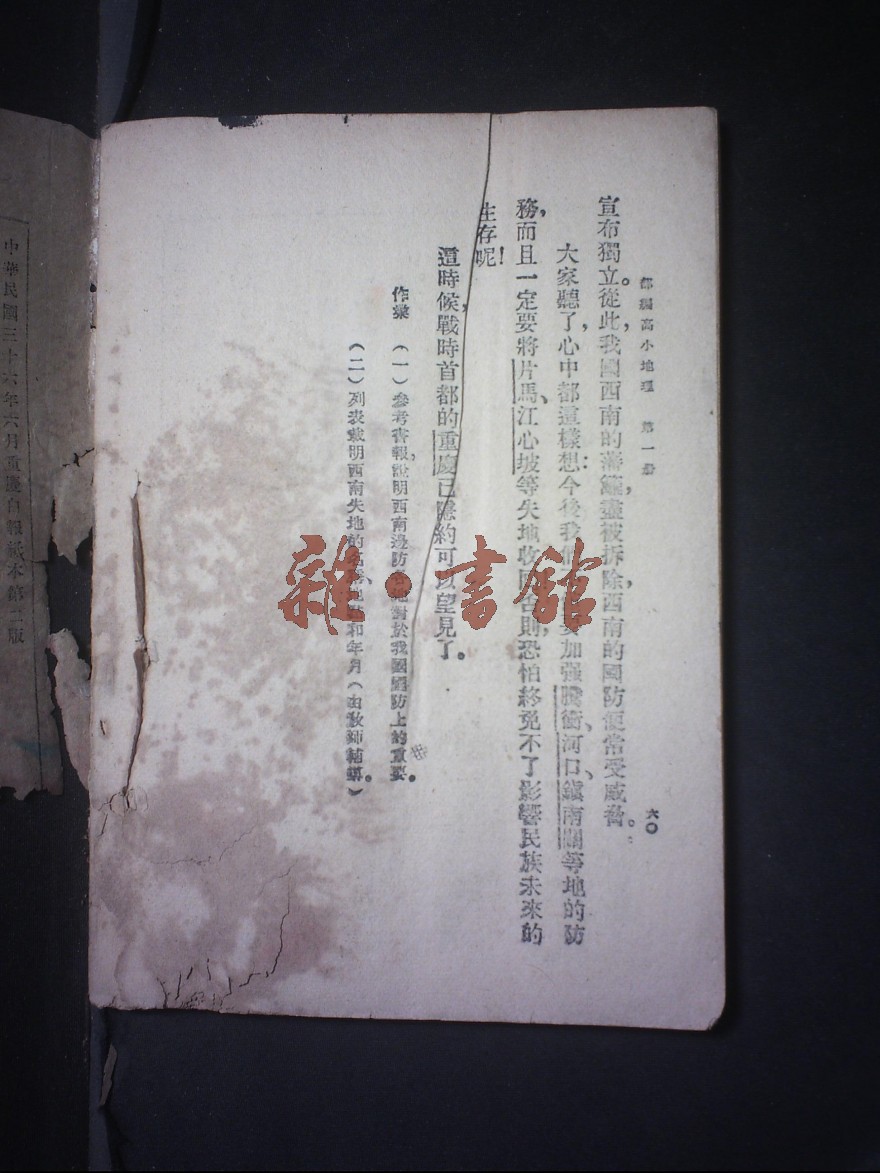 部編高小地理　第一册
六〇
宣布獨立。從此,我國西南的藩籬,盡被拆除,西南的國防便常受威脅。
大家聽了,心中都這樣想:今後我們要加强騰衝、河口、鎮南關等地的防
務,而且一定要將片馬、江心坡等失地收回,否則,恐怕終免不了影響民族未來的
生存呢!
這時候,戰時首都的重慶已隱約可以望見了。
作業　(一)參考書報,說明西南邊防各地對於我國國防上的重要。
(二)列表載明西南失地的名稱、地點和年月(由教師輔導。)
中華民國三十六年六月重慶白報紙本第二版
雜·書館